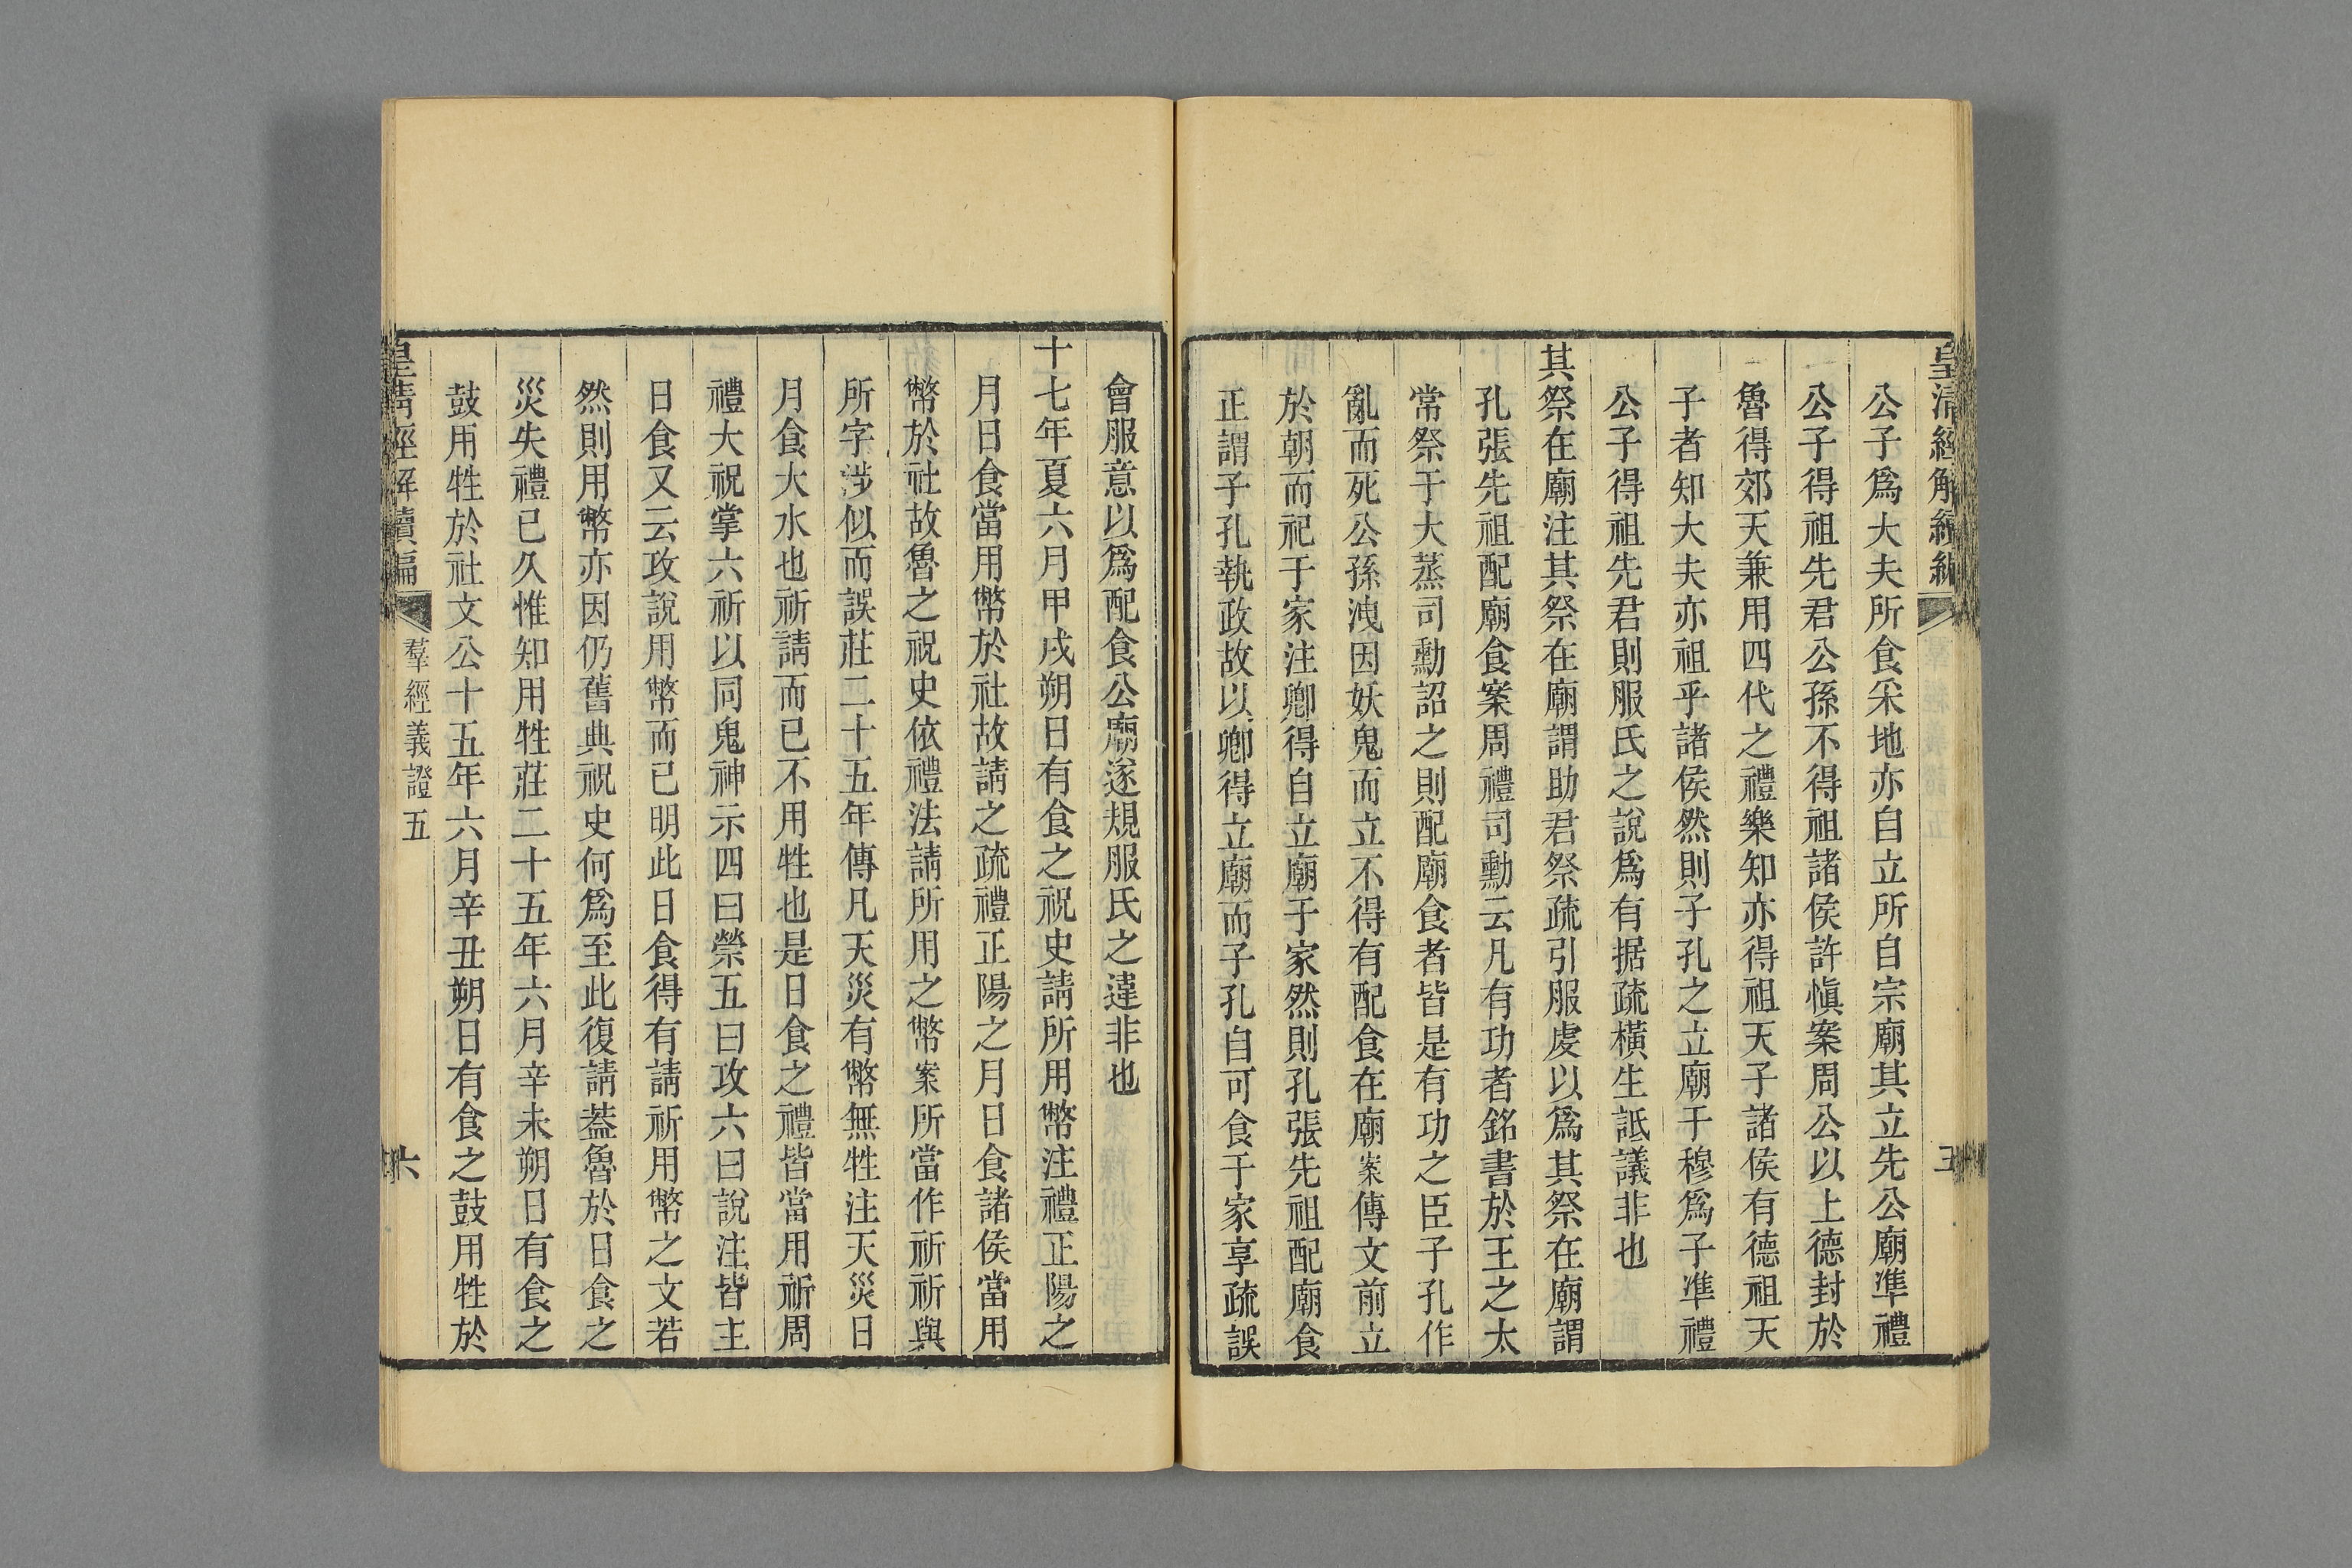 皇清經解續編
公子爲大夫所食采地亦自立所自宗廟其立先公廟準禮
公子得祖先君公孫不得祖諸侯許愼案周公以上德封於
魯得郊天兼用四代之禮樂知亦得祖天子諸侯有德祖天
子者知大夫亦祖乎諸侯然則子孔之立廟于穆爲子準禮
公子得祖先君則服氏之說爲有据疏橫生詆議非也
其祭在廟注其祭在廟謂助君祭疏引服虔以爲其祭在廟謂
孔張先祖配廟食案周禮司勳云凡有功者銘書於王之太
常祭于大蒸司勳詔之則配廟食者皆是有功之臣子孔作
亂而死公孫洩因妖鬼而立不得有配食在廟案傳文前立
於朝而祀于家注卿得自立廟于家然則孔張先祖配廟食
正謂子孔執政故以卿得立廟而子孔自可食于家享疏誤
會服意以爲配食公廟遂規服氏之違非也
十七年夏六月甲戌朔日有食之祝史請所用幣注禮正陽之
月日食當用幣於社故請之疏禮正陽之月日食諸侯當用
幣於社故魯之祝史依禮法請所用之幣案所當作祈祈與
所字涉似而誤莊二十五年傳凡天災有幣無牲注天災日
月食大水也祈請而已不用牲也是日食之禮皆當用祈周
禮大祝掌六祈以同鬼神示四曰禜五曰攻六曰說注皆主
日食又云攻說用幣而已明此日食得有請祈用幣之文若
然則用幣亦因仍舊典祝史何爲至此復請葢魯於日食之
災失禮已久惟知用牲莊二十五年六月辛未朔日有食之
鼓用牲於社文公十五年六月辛丑朔日有食之鼓用牲於
皇清經解續編
羣經義證五
六